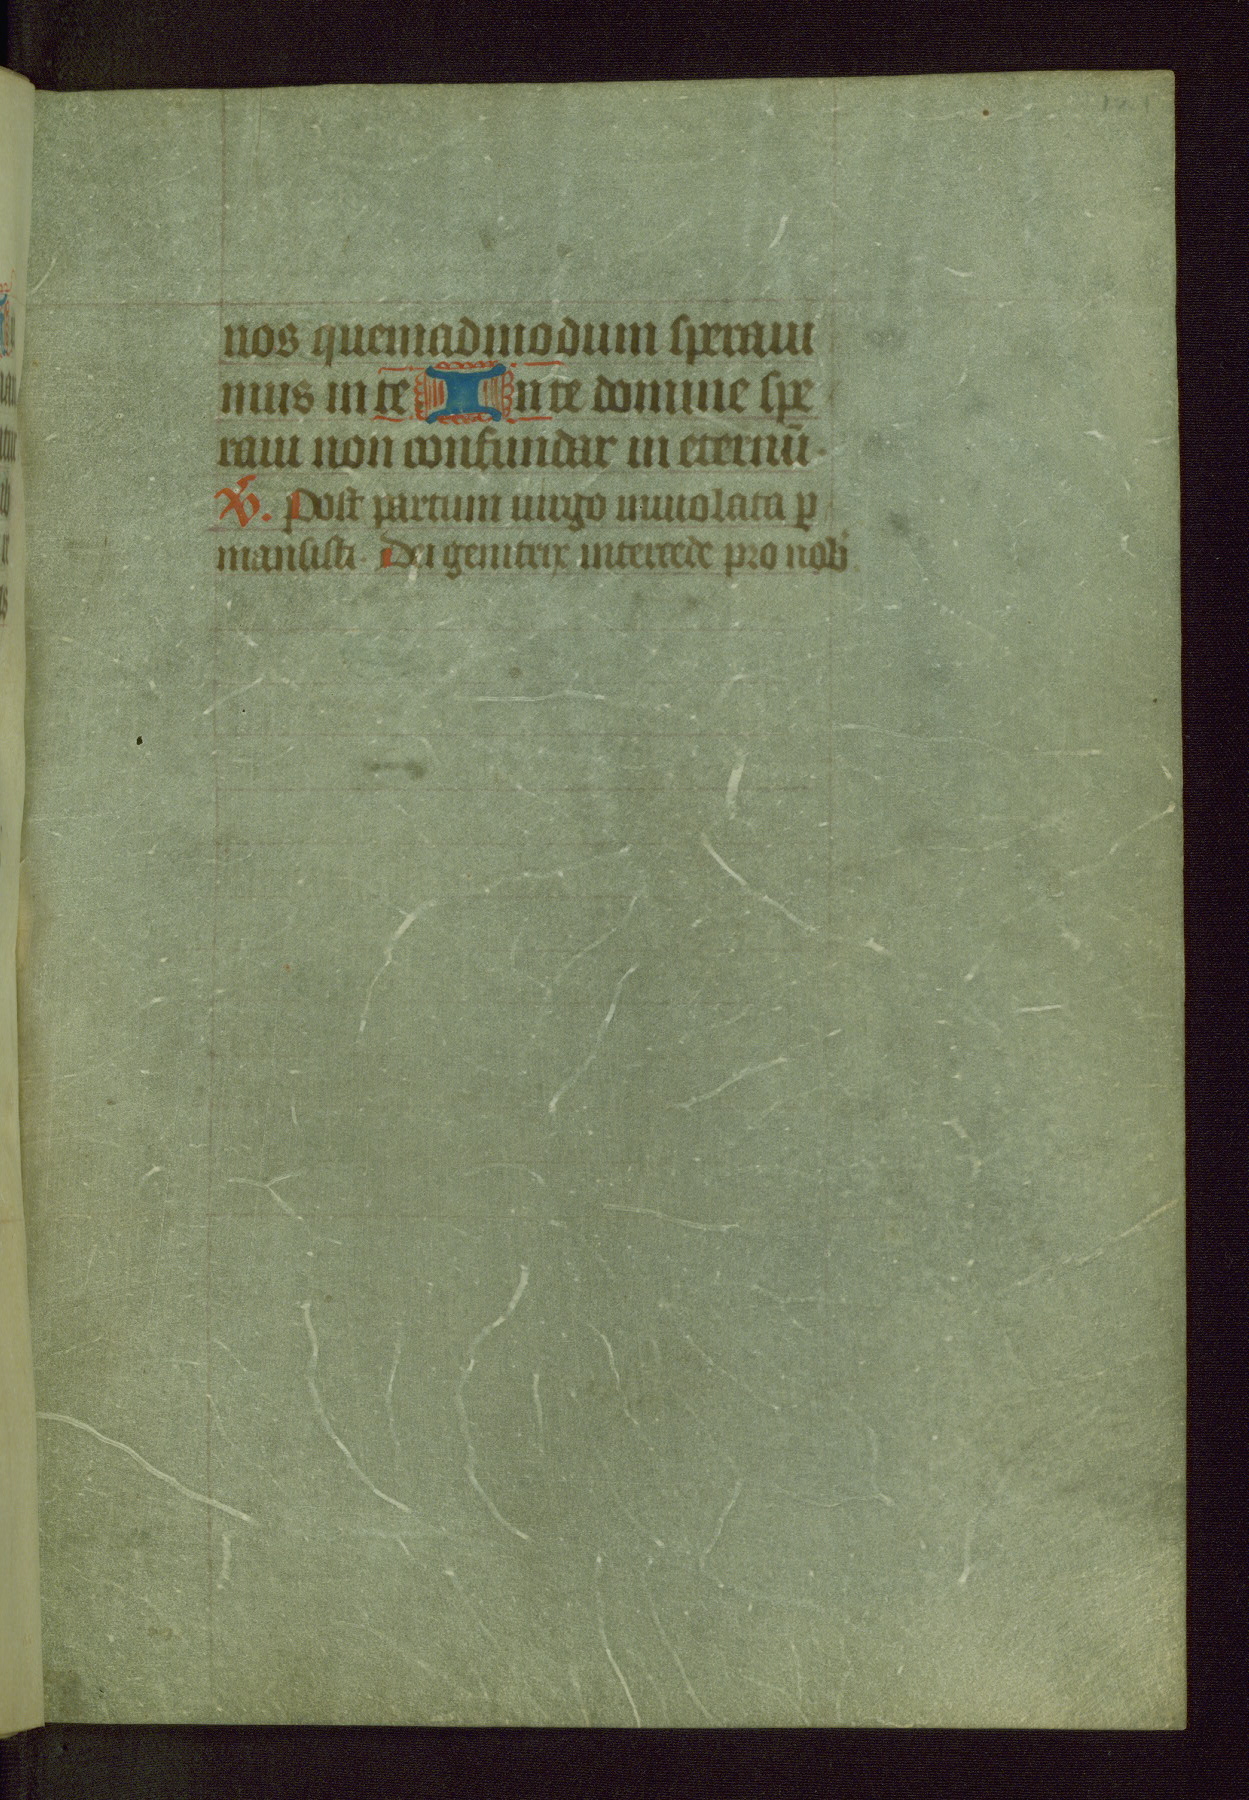 nos quemadmodum speraui
mus in te In te domine spe
raui non confundar in eternū.
V. Post partum uirgo inuiolata ꝑ
mansisti. Dei genitrix intercede pro nob